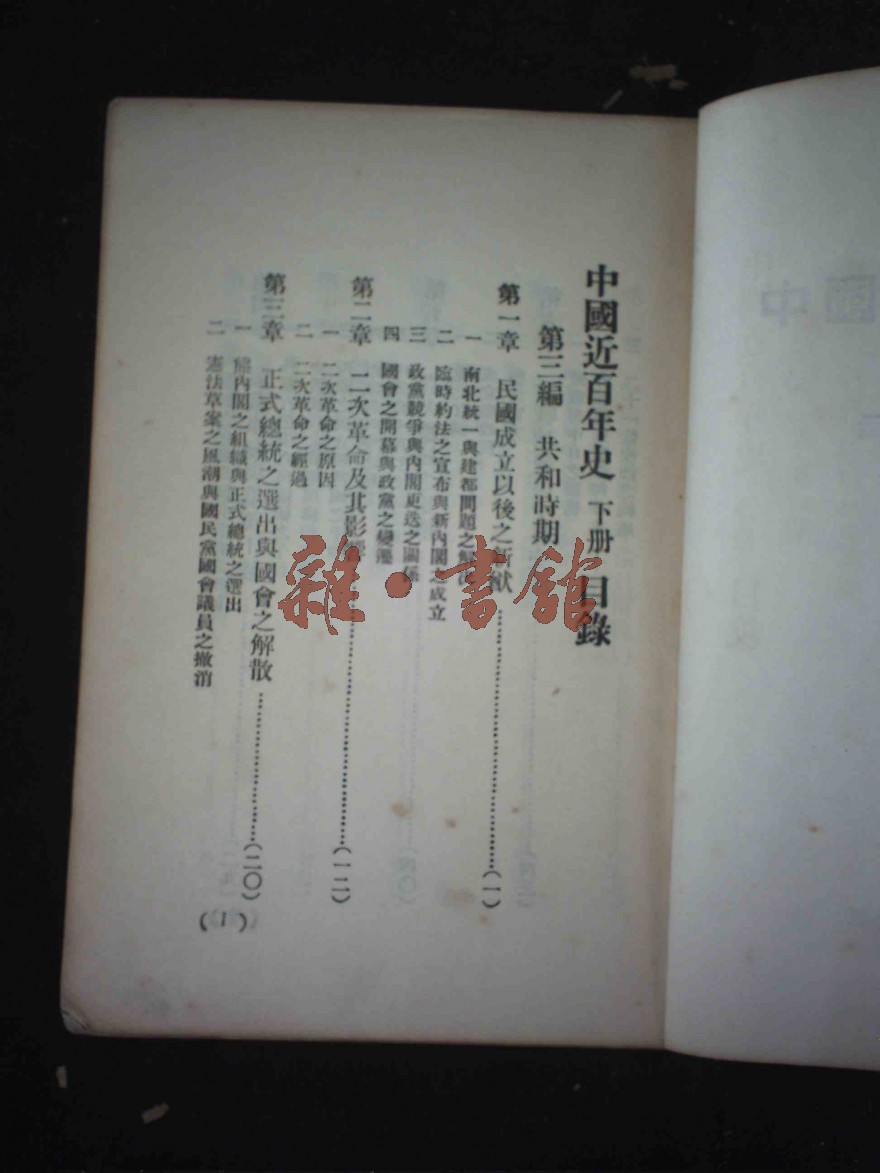 中國近百年史 下册 目錄
第三編 共和時期
第一章 民國成立以後之新猷……(一)
一 南北統一與建都問題之解決
二 臨時約法之宣布與新內閣之成立
三 政黨競爭與內閣更迭之關係
四 國會之開幕與政黨之變遷
第二章 二次革命及其影響……(一二)
一 二次革命之原因
二 二次革命之經過
第三章 正式總統之選出與國會之解散……(二〇)
一 熊內閣之組織與正式總統之選出
二 憲法草案之風潮與國民黨國會議員之撤消
(1)
雜·書館
中國